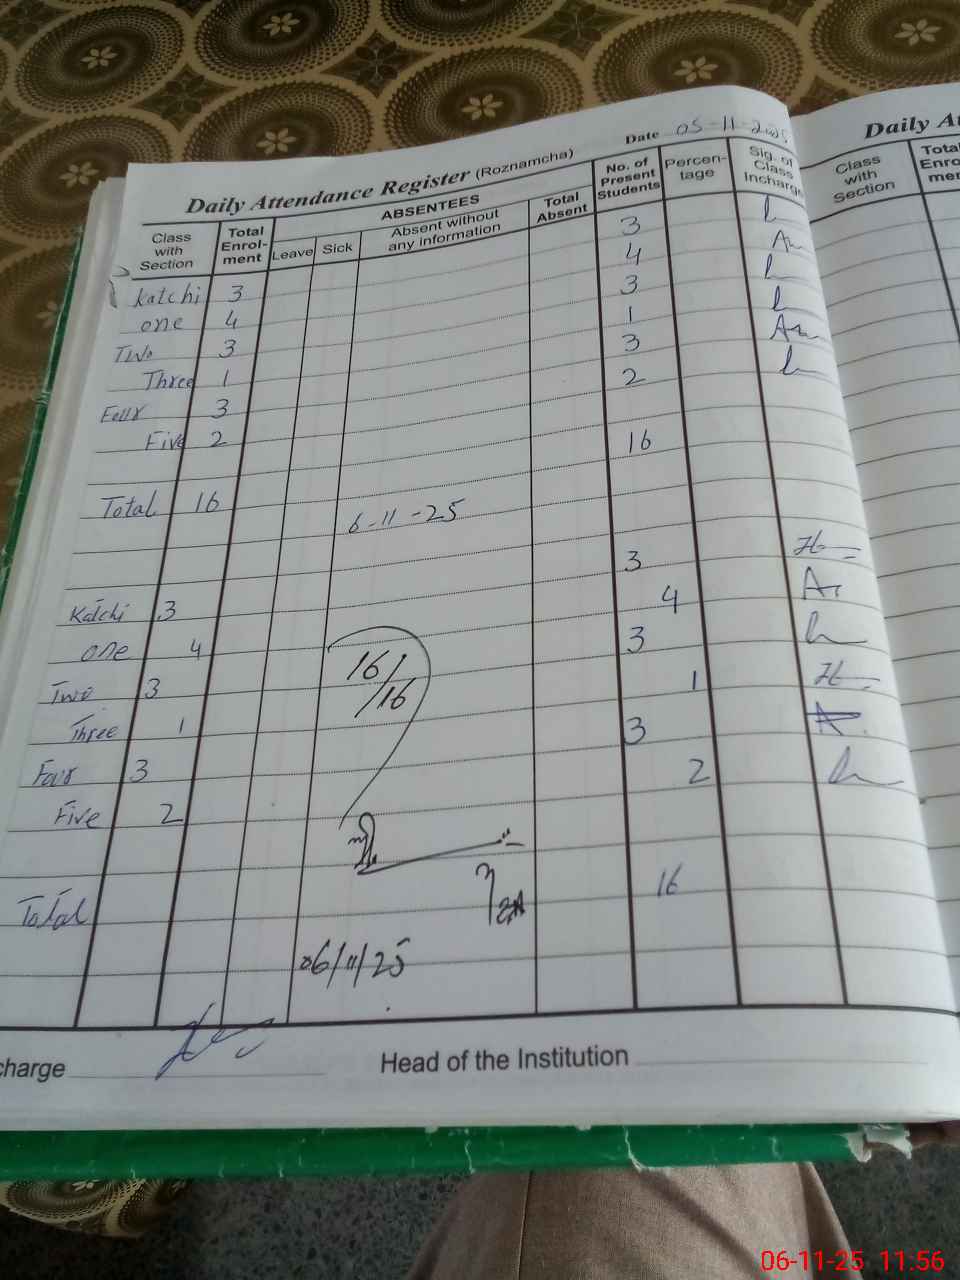 Daily Attendance Register (Roznamcha) Date 05-11-2025
Class with Section Total Enrol-ment ABSENTEES Leave Sick Absent without any information Total Absent No. of Present Students Percen-tage Sig. of Class Incharge
Katchi 3 3
one 4 4
Two 3 3
Three 1 1
Four 3 3
Five 2 2
Total 16 16
6-11-25
Katchi 3 3
one 4 4
Two 3 3
16/16
Three 1 1
Four 3 3
Five 2 2
Total 16
06/11/25
charge Head of the Institution
Daily At
Class with Section Total Enro men
06-11-25 11:56